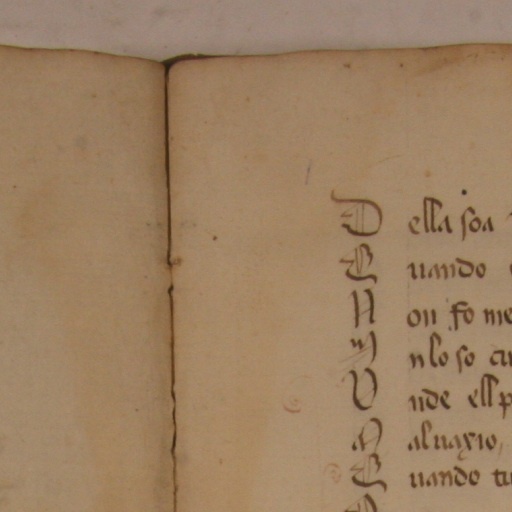 D ella soa
E uando
N on fo me
I nlo so cu
U nde ell p
M aluaxio,
E uando tu